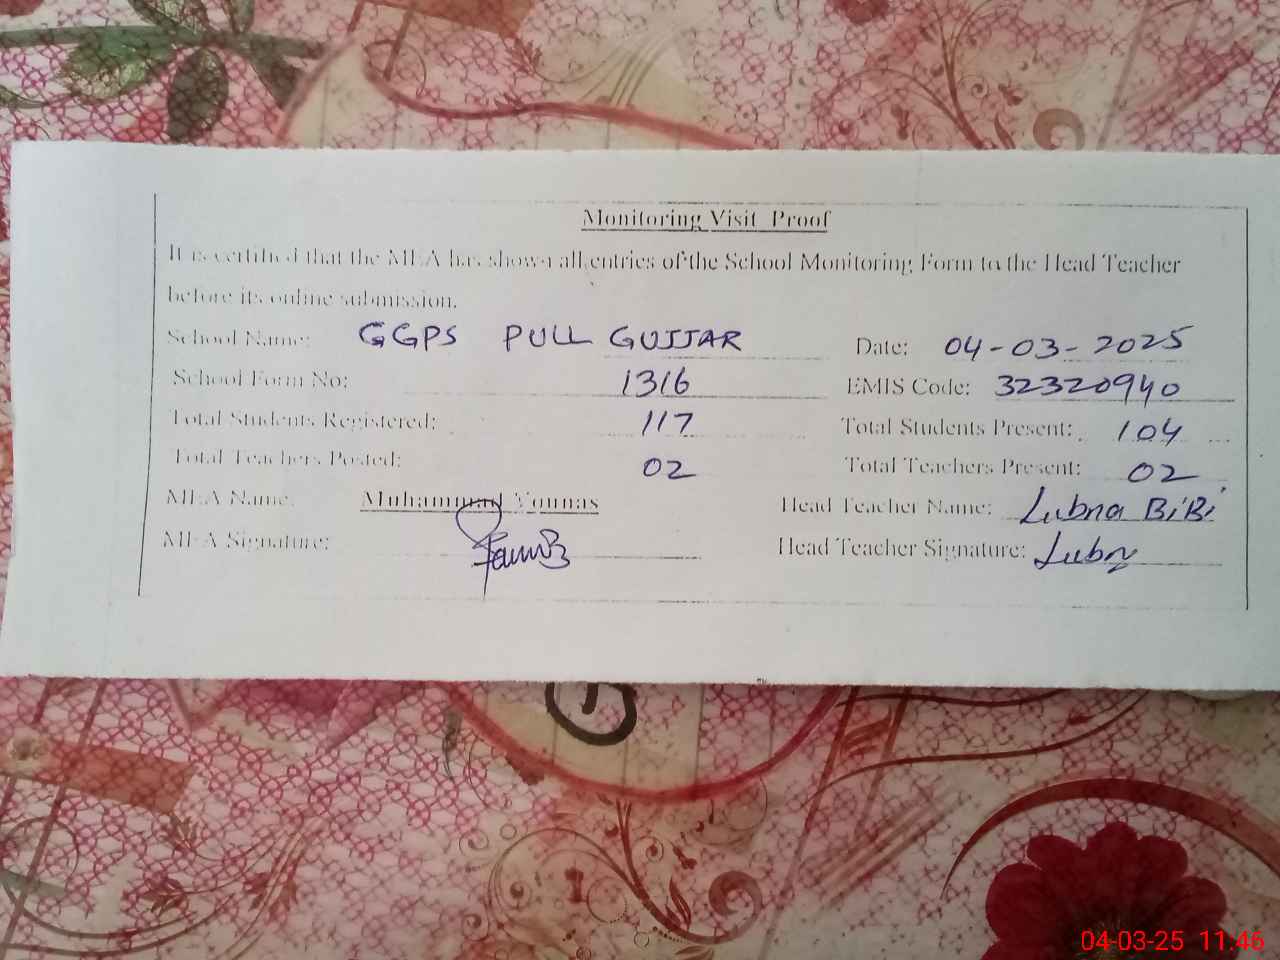 Monitoring Visit Proof
It is certified that the MEA has shown all entries of the School Monitoring Form to the Head Teacher
before its online submission.
School Name: GGPS PULL GUJJAR Date: 04-03-2025
School Form No: 1316 EMIS Code: 32320940
Total Students Registered: 117 Total Students Present: 104
Total Teachers Posted: 02 Total Teachers Present: 02
MEA Name: Muhammad Younas Head Teacher Name: Lubna BiBi
MEA Signature: Head Teacher Signature: Lubn
1
04-03-25 11:46